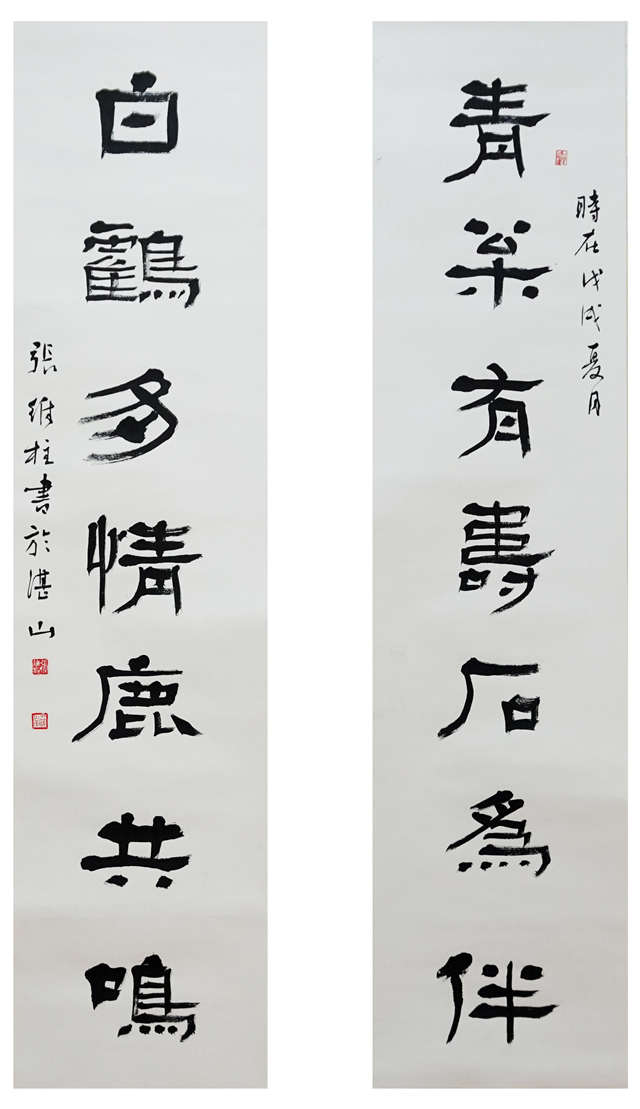 青枀有壽石爲伴
時在戊戌夏月
白鸖多情鹿共鳴
張維柱書於湛山